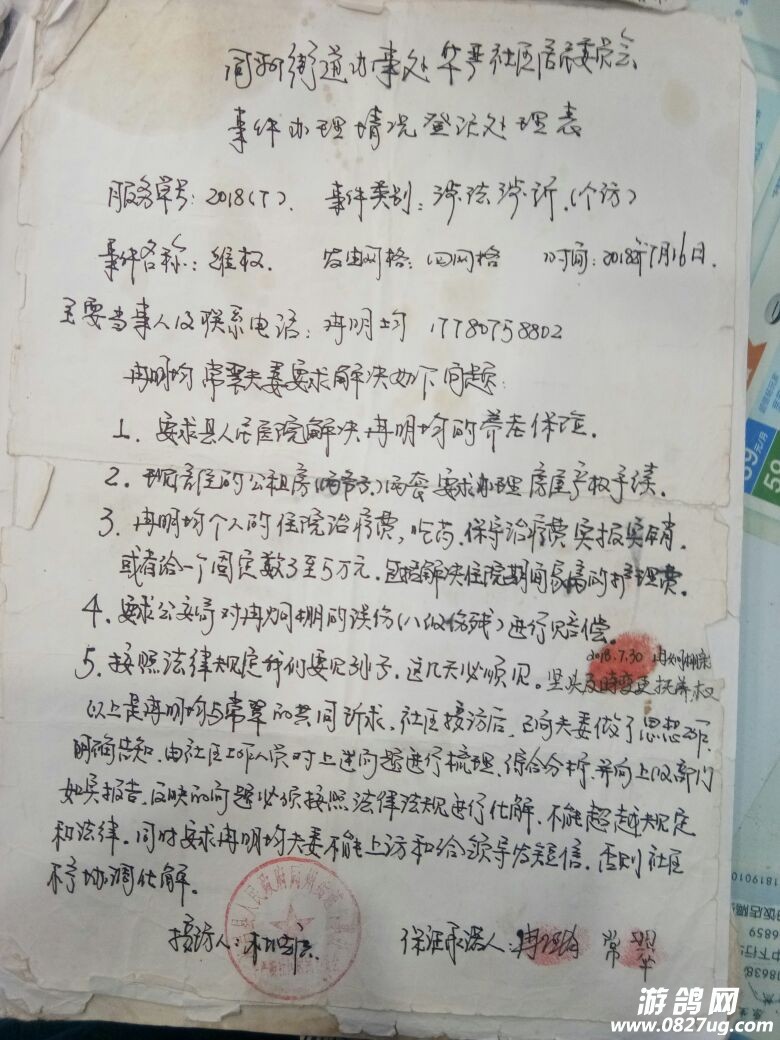 同州街道办事处华严社区居民委员会
事件办理情况登记处理表
服务单号:2018(7). 事件类别:涉法涉诉.(个访)
事件名称:维权. 发由网格:四网格 时间:2018年7月16日.
主要当事人及联系电话:冉明均 17780758802
冉明均 常翠夫妻要求解决如下问题:
1. 要求县人民医院解决冉明均的养老保险.
2. 现居住的公租房(两市子)两套要求办理房屋产权手续.
3. 冉明均个人的住院治疗费,吃药.保守治疗费实报实销.
或者给一个固定数3至5万元.包括解决住院期间的护理费.
4. 要求公安局对冉炯棚的误伤(八级伤残)进行赔偿.
2018.7.30
5. 按照法律规定我们要见孙子.这几天必须见.坚决及時变更抚养权
以上是冉明均与常翠的共同诉求.社区接访后,已向夫妻做了思想工作.
明确告知.由社区工作人员对上述问题进行梳理.综合分析.并向上级部门
如实报告.反映的问题必须按照法律法规进行化解.不能超越规定
和法律.同时要求冉明均夫妻不能上访和给领导发短信.否则社区
不予协调化解.
接访人: 保证承诺人:冉明均 常翠
游鸽网
www.0827ug.com